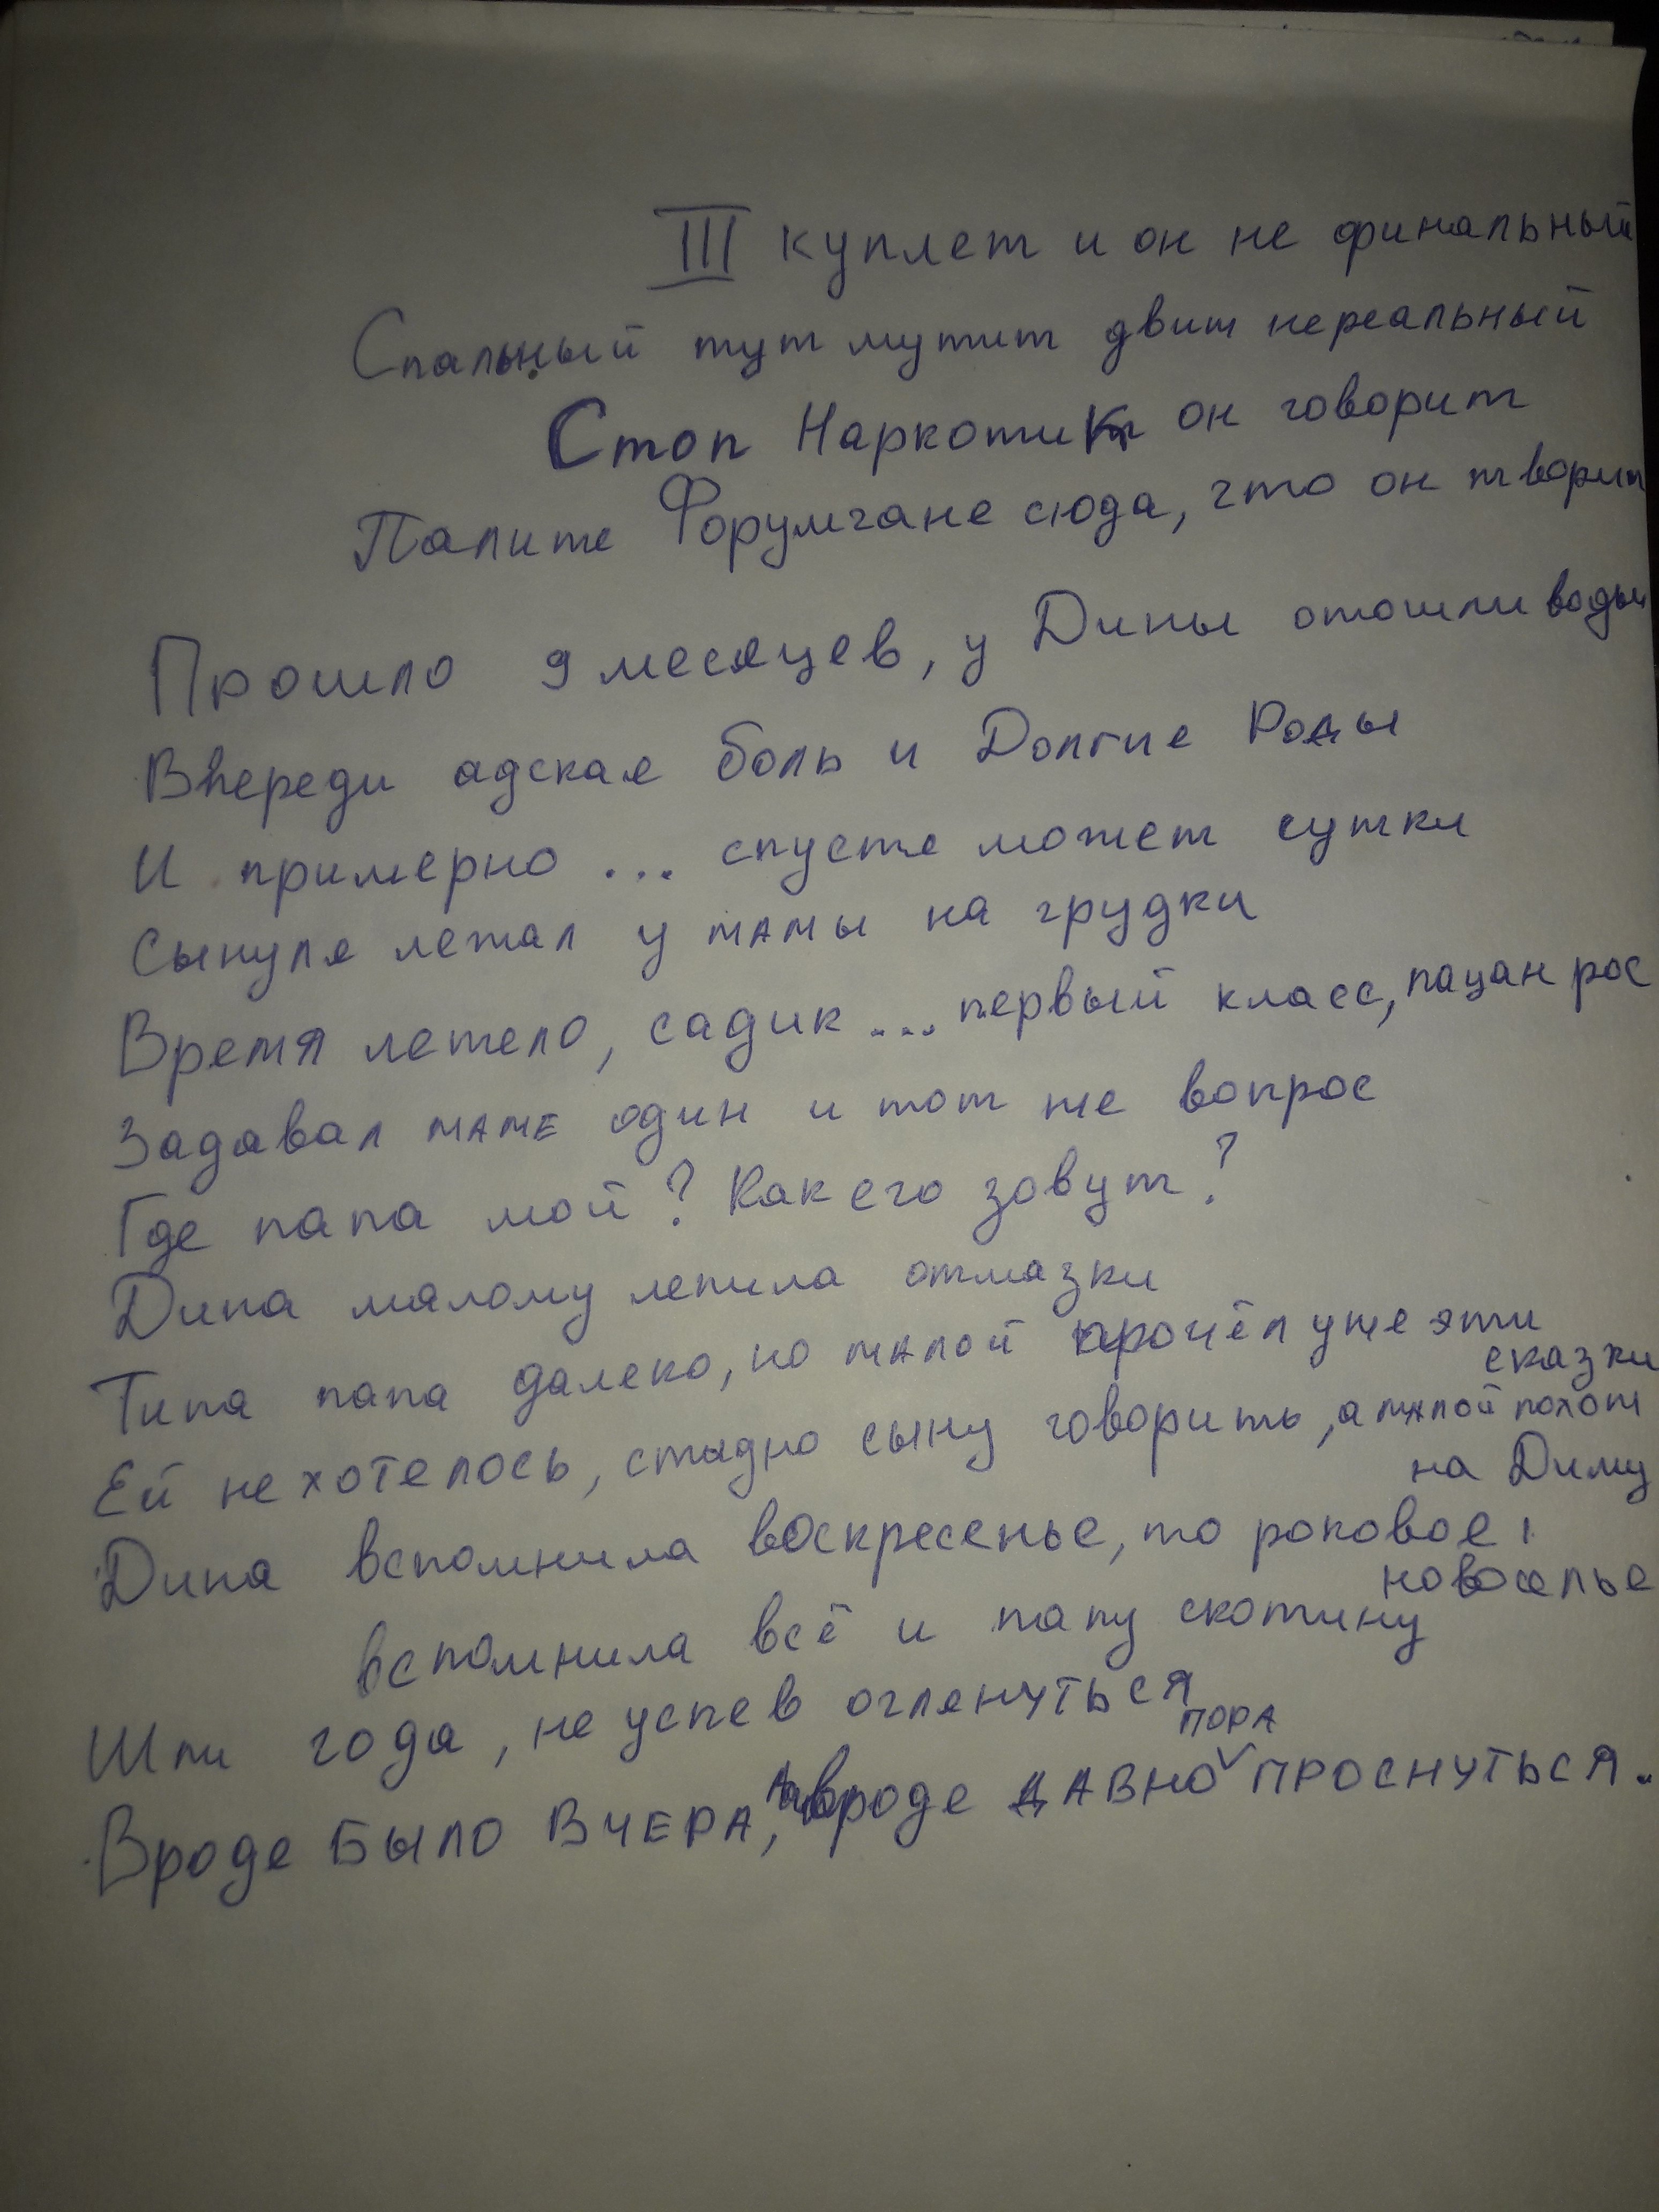 III куплет и он не финальный
Спальный тут мутит движ нереальный
Стоп Наркотик он говорит
Палите Форумчане сюда, что он творит
Прошло 9 месяцев, у Дины отошли воды
Впереди адская боль и Долгие Роды
И примерно ... спустя может сутки
Сынуля лежал у мамы на грудки
Время летело, садик ... первый класс, пацан рос
Задавал маме один и тот же вопрос
Где папа мой? Как его зовут?
Дина малому лепила отмазки
Типа папа далеко, но малой прочёл уже эти
сказки
Ей не хотелось, стыдно сыну говорить, а малой похож
на Диму
Дина вспомнила воскресенье, то роковое
новоселье
вспомнила всё и папу скотину
Шли года, не успев оглянуться
пора
Вроде было вчера, а вроде давно проснуться.